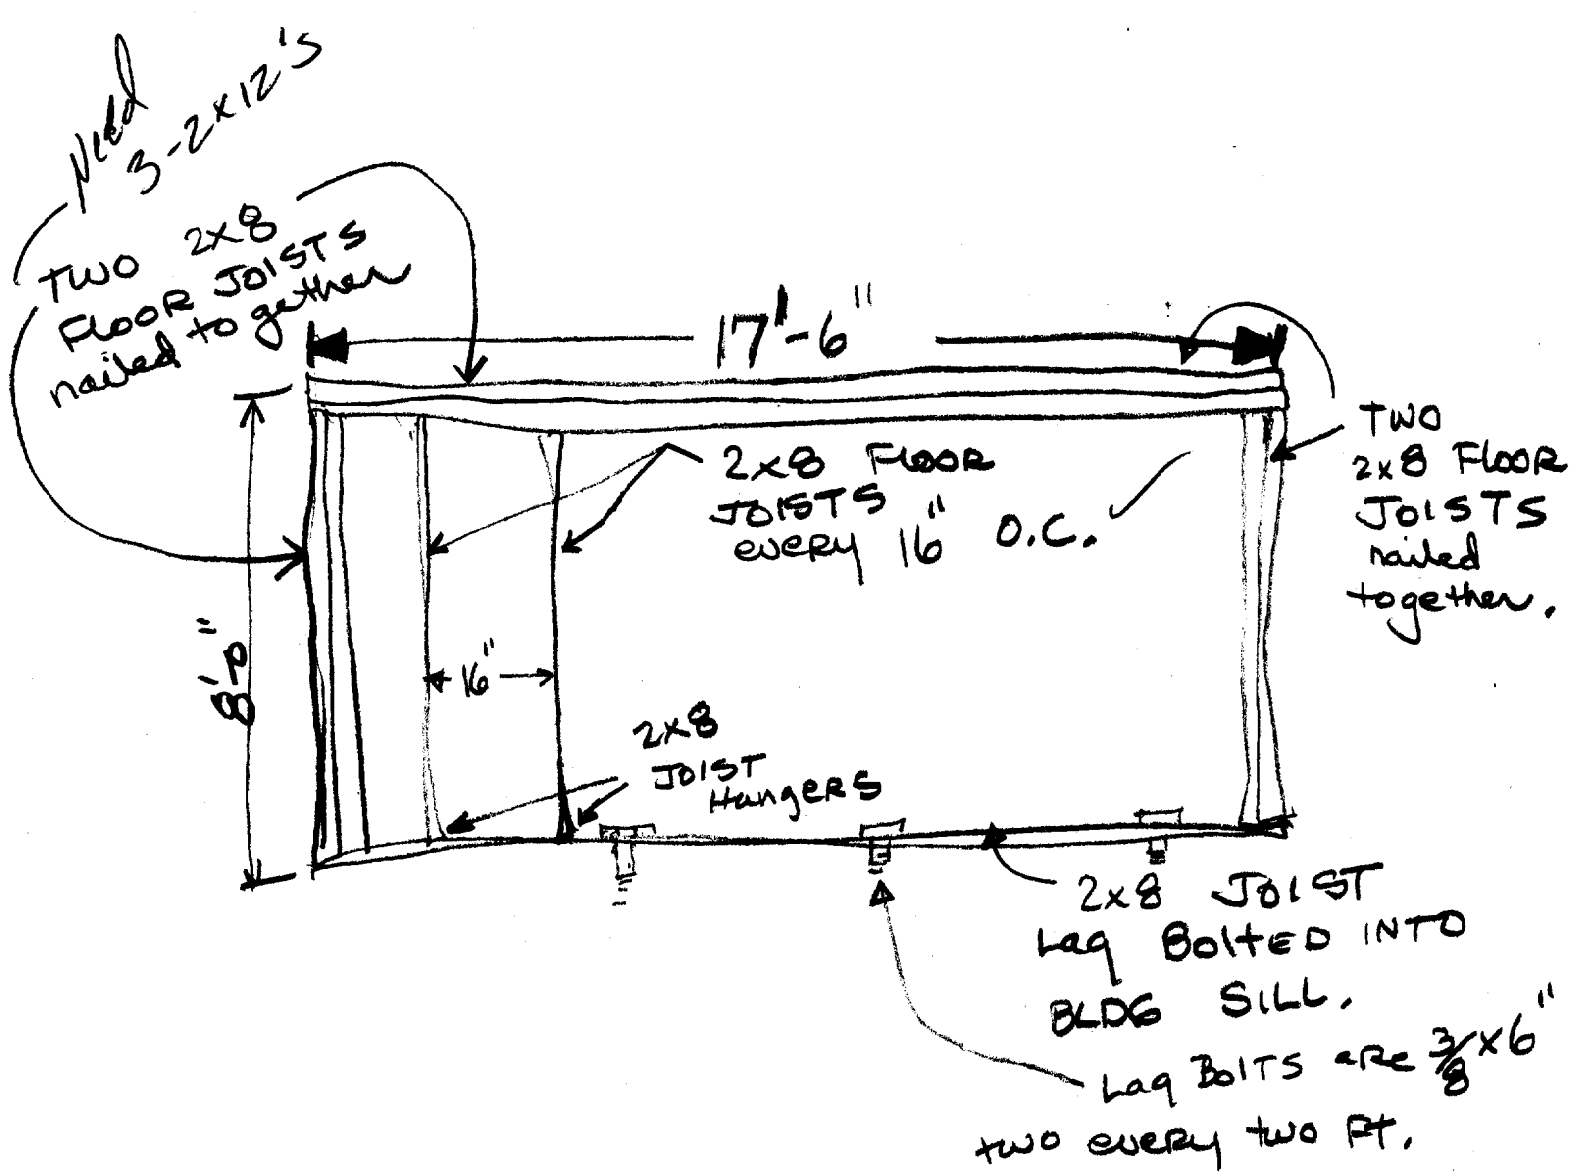 Need
3-2x12's
TWO 2x8
FLOOR JOISTS
nailed together
17'-6"
8'-0"
2x8 FLOOR
JOISTS
every 16" O.C.
TWO
2x8 FLOOR
JOISTS
nailed
together.
16"
2x8
JOIST
HangERS
2x8 JOIST
Lag BOLTED INTO
BLDG SILL.
Lag BOLTS are 3/8 x 6"
two every two FT.